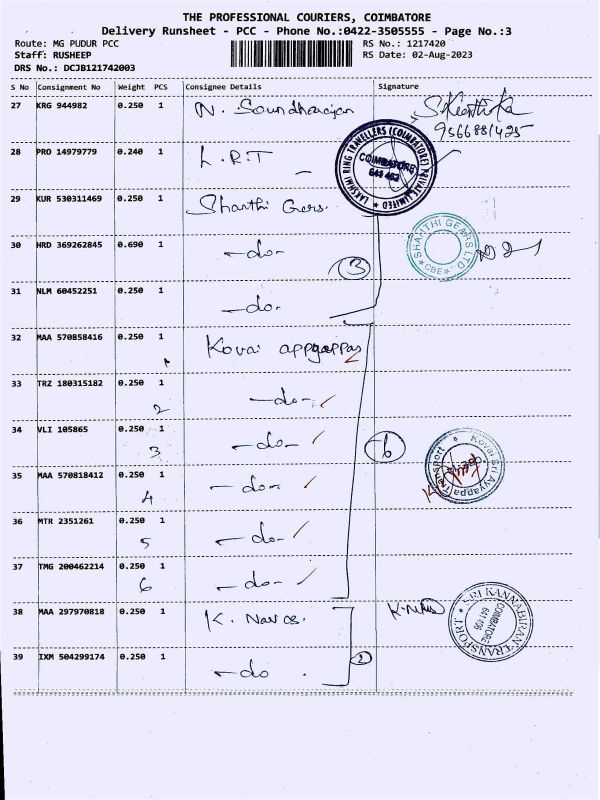 THE PROFESSIONAL COURIERS, COIMBATORE
Delivery Runsheet - PCC - Phone No.:0422-3505555 - Page No.:3
Route: MG PUDUR PCC RS No.: 1217420
Staff: RUSHEEP RS Date: 02-Aug-2023
DRS No.: DCJB121742003
S No Consignment No Weight PCS Consignee Details Signature
27 KRG 944982 0.250 1 N. Soundharajan
28 PRO 14979779 0.240 1 L.R.T
LAKSHMI RING TRAVELLERS (COIMBATORE) PRIVATE LIMITED COIMBATORE
29 KUR 530311469 0.250 1 Shanthi Gers.
30 HRD 369262845 0.690 1 -do- 3
SHANTHI GEARS LTD CBE
31 NLM 60452251 0.250 1 -do-
32 MAA 570858416 0.250 1 Kovai
1
33 TRZ 180315182 0.250 1 -do-
2
34 VLI 105865 0.250 1 -do- 6
3
Kovai Sri Ayyappa Transport
35 MAA 570818412 0.250 1 -do-
4
36 MTR 2351261 0.250 1 -do-
5
37 TMG 200462214 0.250 1 -do-
6
38 MAA 297970818 0.250 1 K. Navos.
SRI KANNABIRAN TRANSPORT COIMBATORE
39 IXM 504299174 0.250 1 -do 2